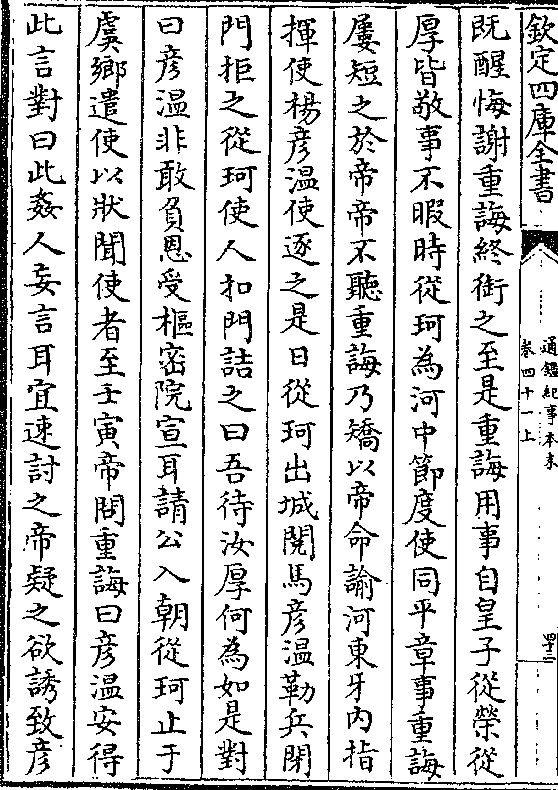 欽定四庫全書
通鑑紀事本末
卷四十一上
四十二
既醒悔謝重誨終銜之至是重誨用事自皇子從榮從
厚皆敬事不暇時從珂為河中節度使同平章事重誨
屢短之於帝帝不聽重誨乃矯以帝命諭河東牙內指
揮使楊彥溫使逐之是日從珂出城閱馬彥溫勒兵閉
門拒之從珂使人扣門詰之曰吾待汝厚何為如是對
曰彥溫非敢負恩受樞密院宣耳請公入朝從珂止于
虞鄉遣使以狀聞使者至壬寅帝問重誨曰彥溫安得
此言對曰此姦人妄言耳宜速討之帝疑之欲誘致彥